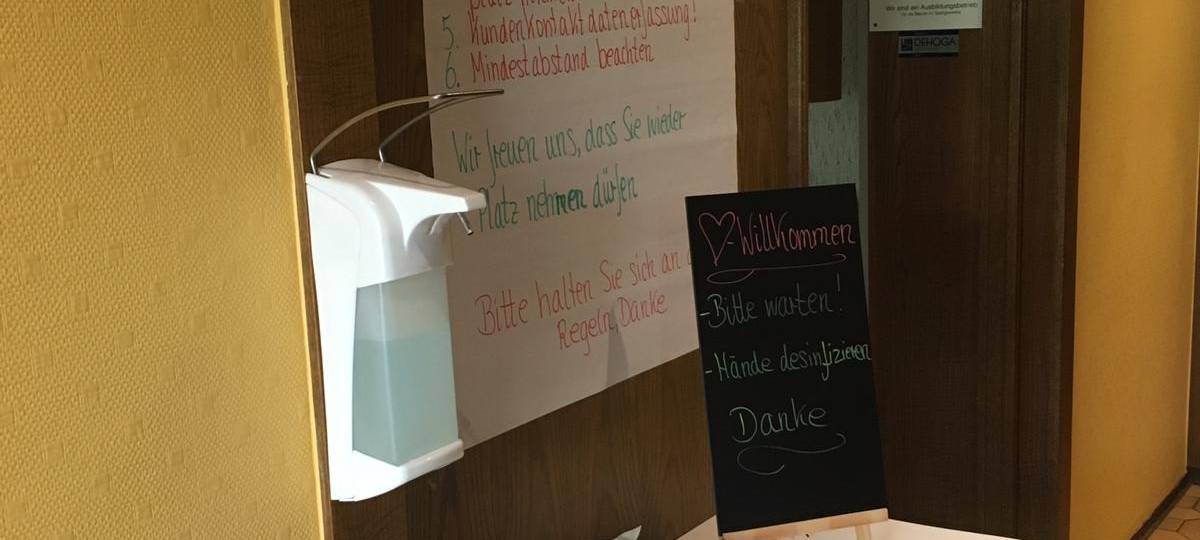 5. Kundenkontaktdatenerfassung!
6. Mindestabstand beachten
Wir freuen uns, dass Sie wieder
Platz nehmen dürfen
Bitte halten Sie sich an
Regeln, Danke
Willkommen
- Bitte warten!
- Hände desinfizieren
Danke
Wir sind ein Ausbildungsbetrieb
DEHOGA